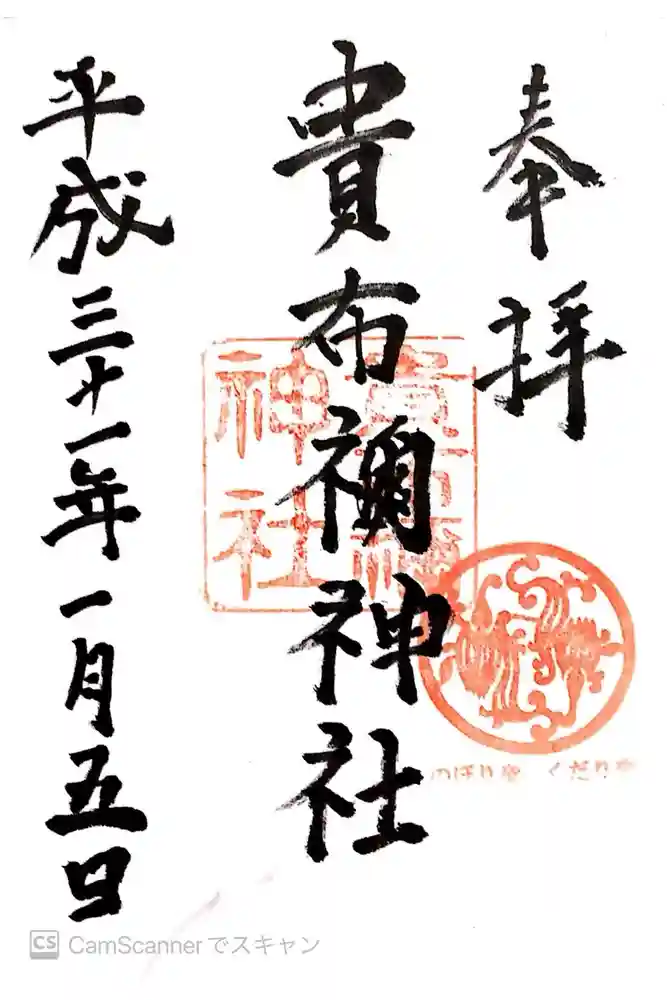 奉拝
貴布禰神社
平成三十一年一月五日
貴布禰
神社
のぼり龍 くだり龍
CS CamScannerでスキャン